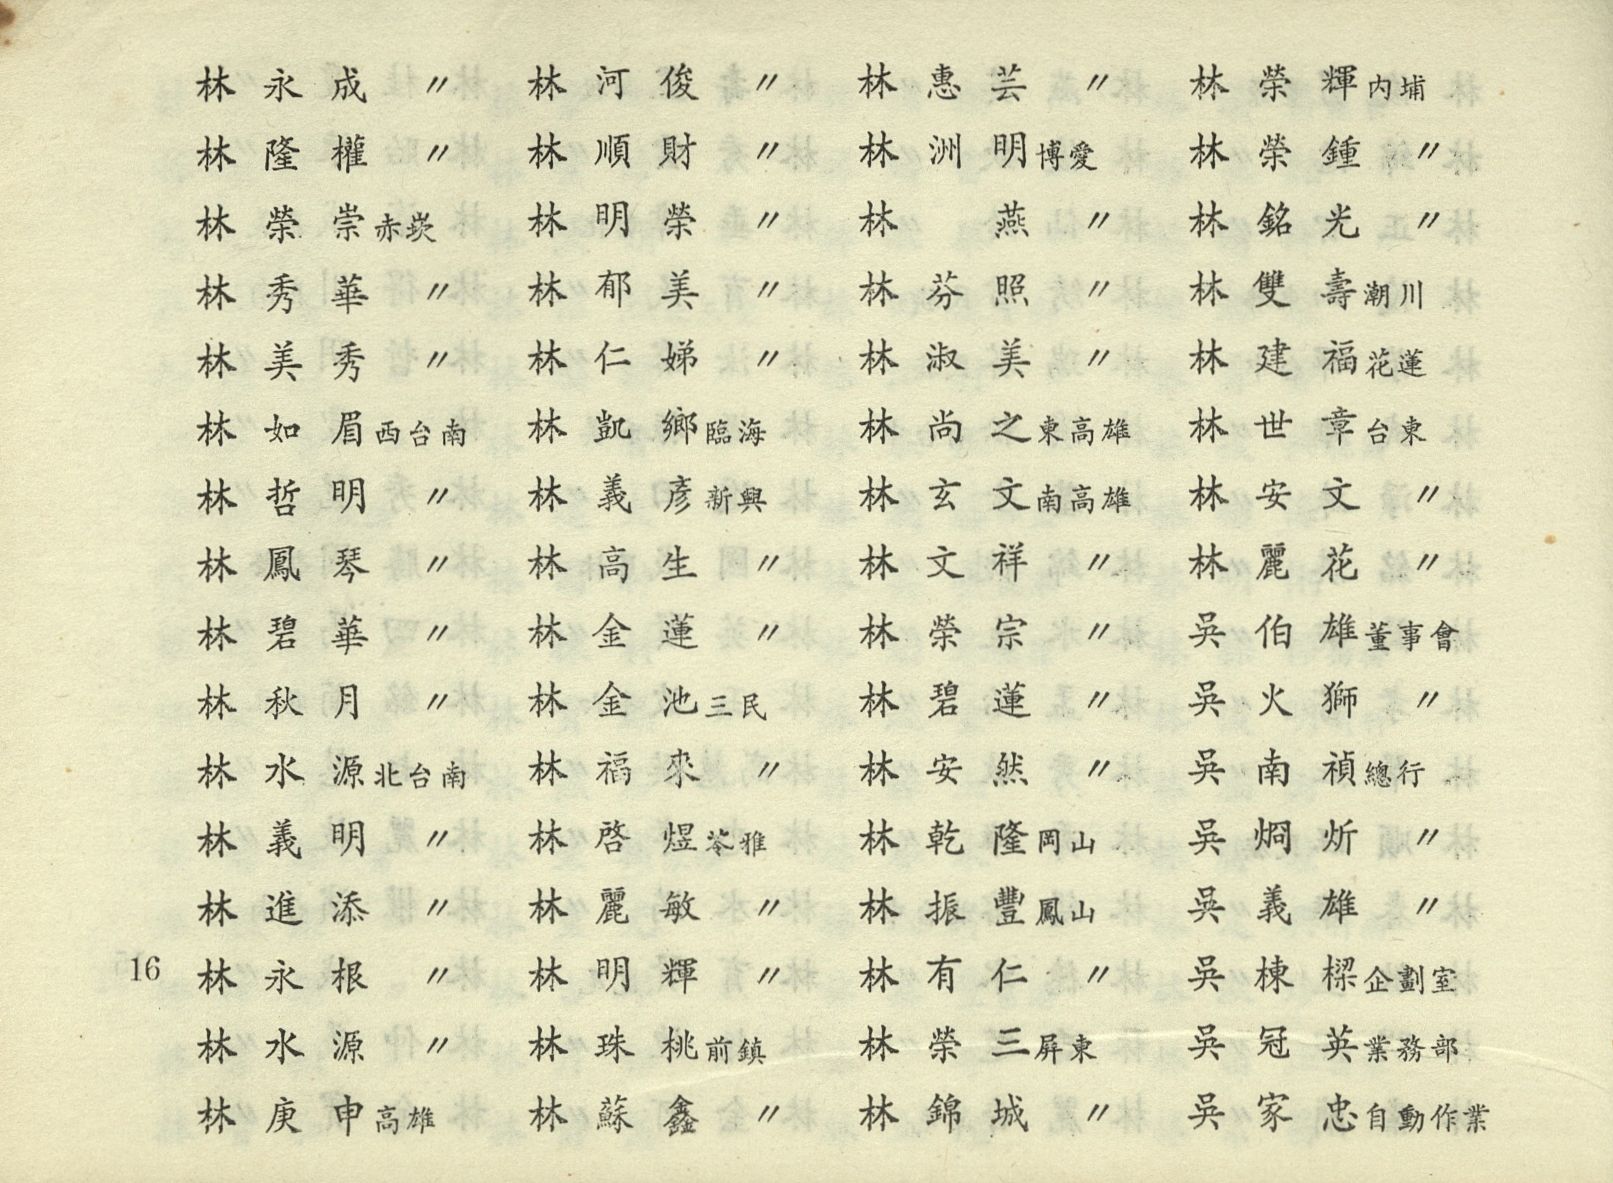 林永成 〃
林隆權 〃
林榮崇 赤崁
林秀華 〃
林美秀 〃
林如眉 西台南
林哲明 〃
林鳳琴 〃
林碧華 〃
林秋月 〃
林水源 北台南
林義明 〃
林進添 〃
林永根 〃
林水源 〃
林庚申 高雄
林河俊 〃
林順財 〃
林明榮 〃
林郁美 〃
林仁娣 〃
林凱鄉 臨海
林義彥 新興
林高生 〃
林金蓮 〃
林金池 三民
林福來 〃
林啓煜 苓雅
林麗敏 〃
林明輝 〃
林珠桃 前鎮
林蘇鑫 〃
林惠芸 〃
林洲明 博愛
林燕 〃
林芬照 〃
林淑美 〃
林尚之 東高雄
林玄文 南高雄
林文祥 〃
林榮宗 〃
林碧蓮 〃
林安然 〃
林乾隆 岡山
林振豐 鳳山
林有仁 〃
林榮三 屏東
林錦城 〃
林榮輝 內埔
林榮鍾 〃
林銘光 〃
林雙壽 潮川
林建福 花蓮
林世章 台東
林安文 〃
林麗花 〃
吳伯雄 董事會
吳火獅 〃
吳南禎 總行
吳烱炘 〃
吳義雄 〃
吳棟樑 企劃室
吳冠英 業務部
吳家忠 自動作業
16